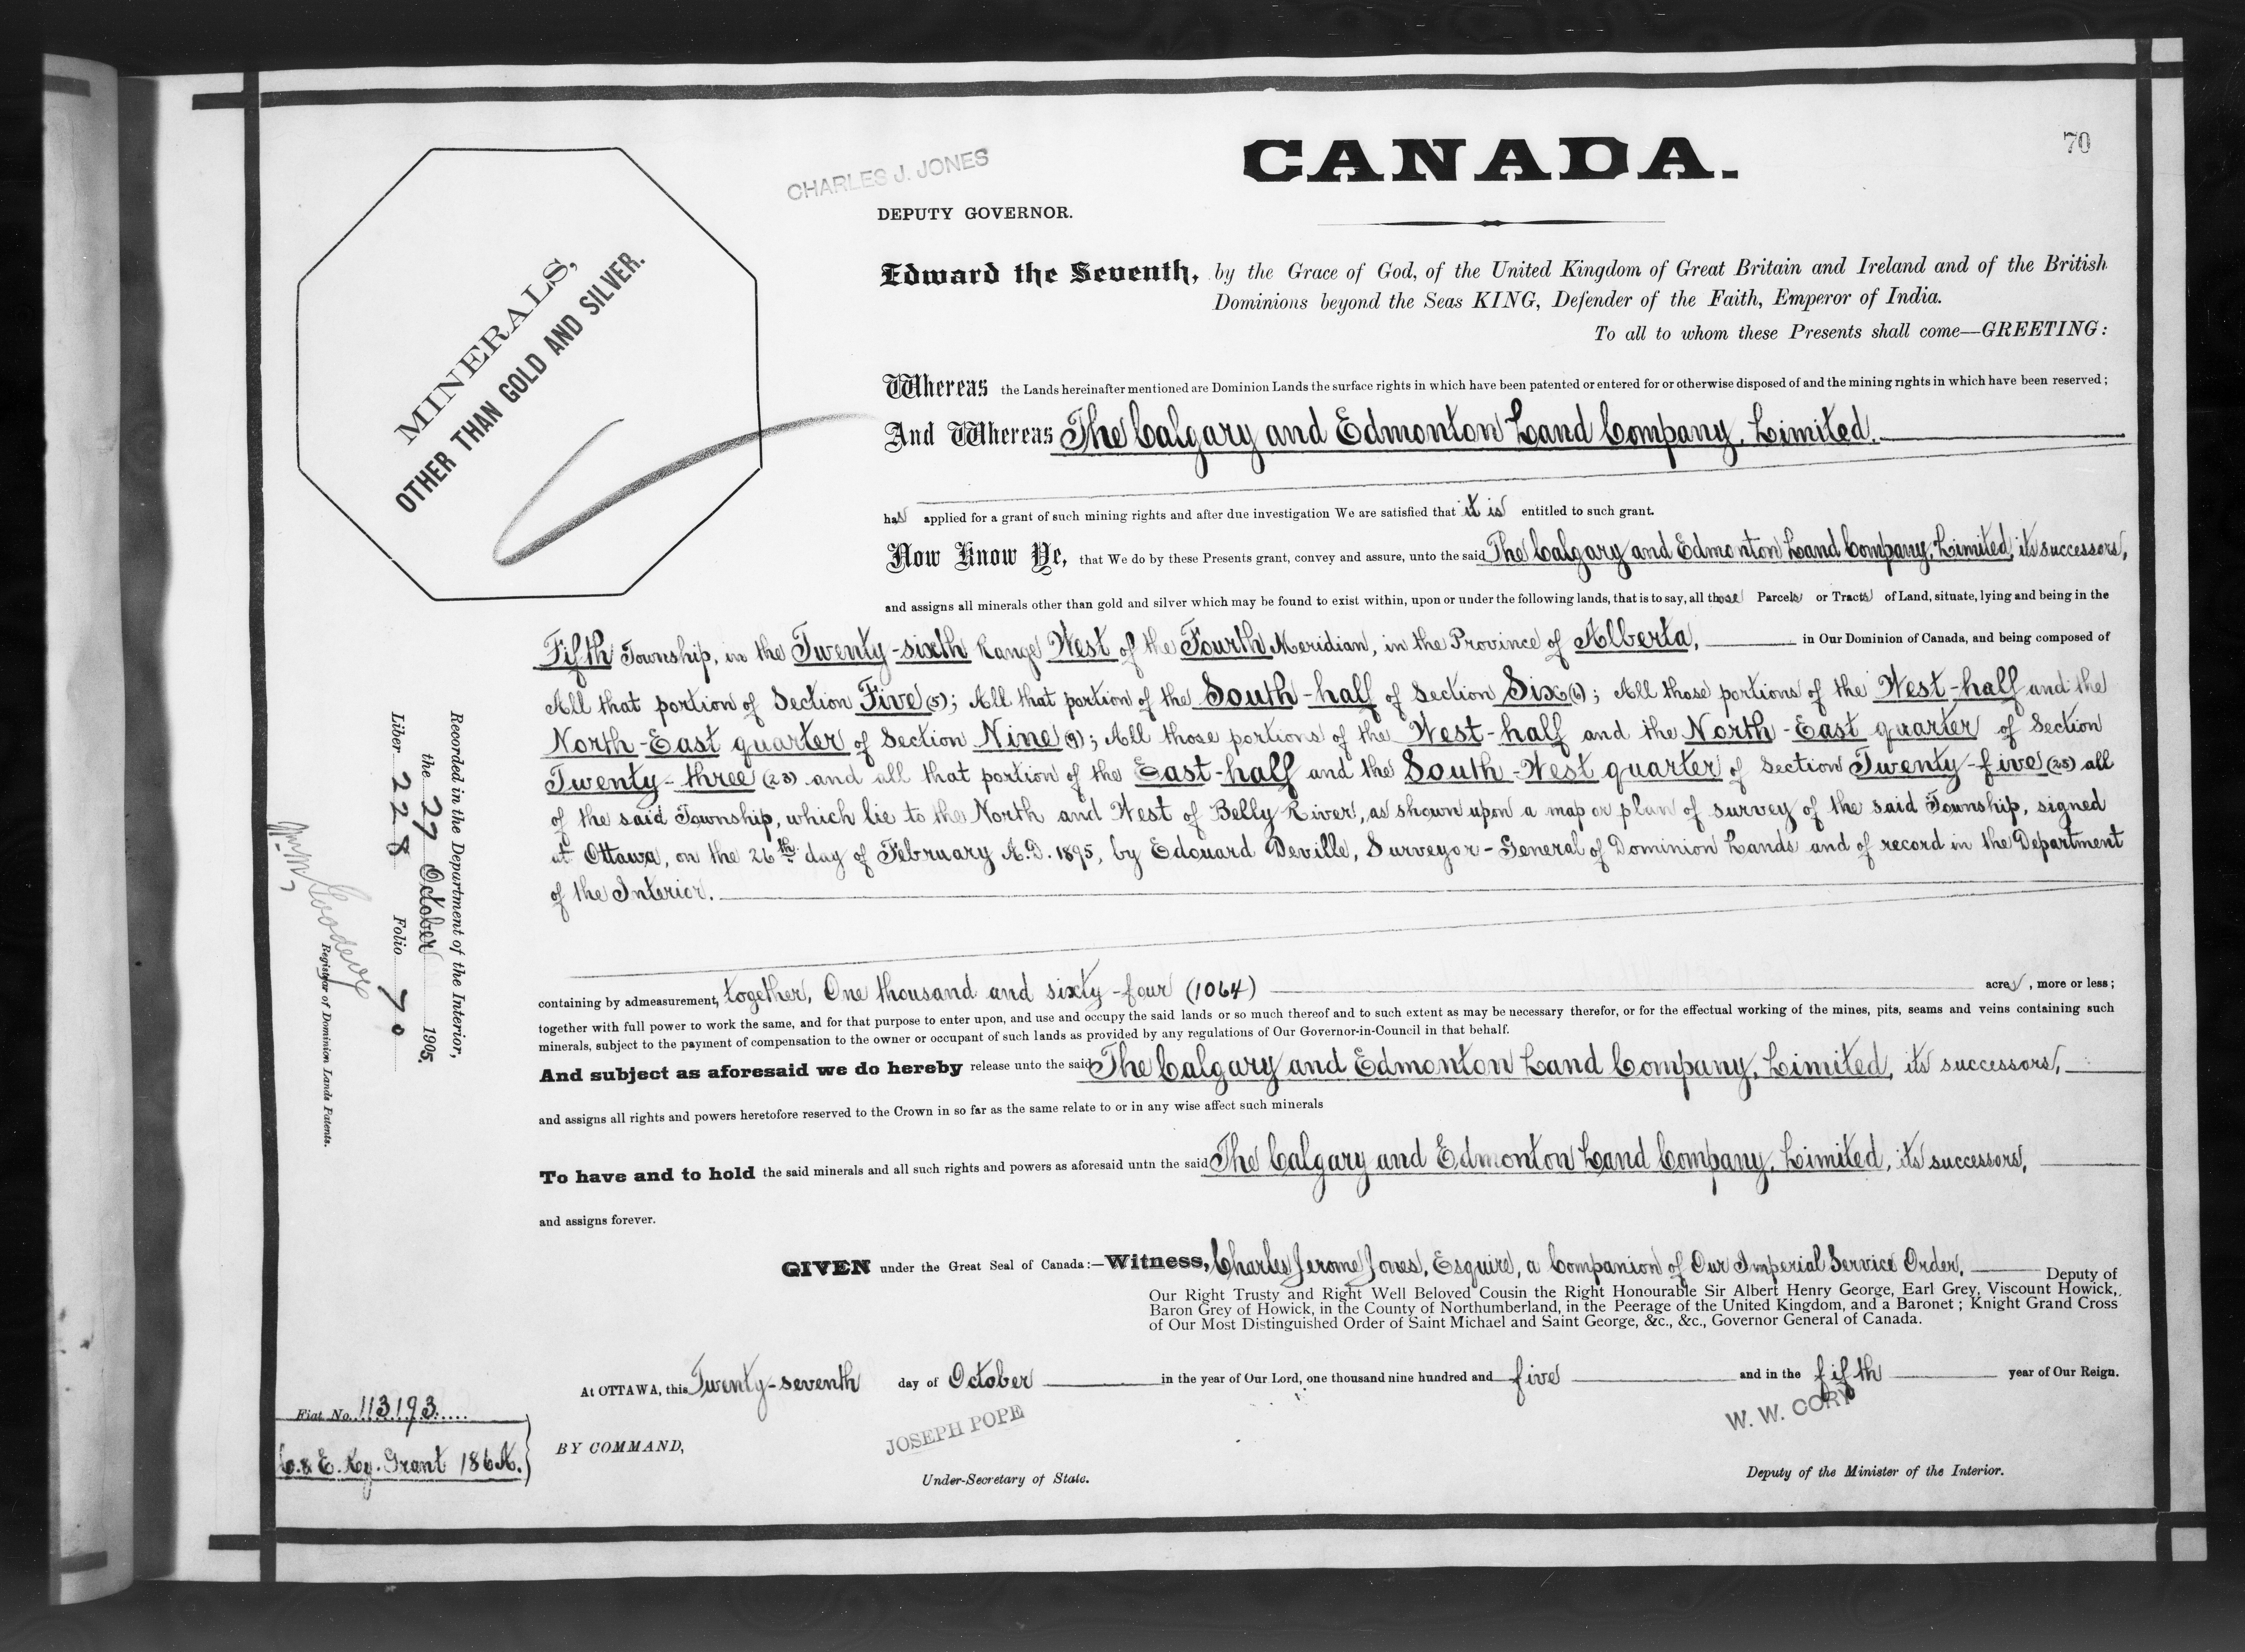 70
CHARLES J. JONES
CANADA.
DEPUTY GOVERNOR.
MINERALS,
OTHER THAN GOLD AND SILVER.
Edward the Seventh, by the Grace of God, of the United Kingdom of Great Britain and Ireland and of the British
Dominions beyond the Seas KING, Defender of the Faith, Emperor of India.
To all to whom these Presents shall come—GREETING:
Whereas the Lands hereinafter mentioned are Dominion Lands the surface rights in which have been patented or entered for or otherwise disposed of and the mining rights in which have been reserved;
And Whereas The Calgary and Edmonton Land Company, Limited.
has applied for a grant of such mining rights and after due investigation We are satisfied that it is entitled to such grant.
Now Know Ye, that We do by these Presents grant, convey and assure, unto the said The Calgary and Edmonton Land Company, Limited, its successors,
and assigns all minerals other than gold and silver which may be found to exist within, upon or under the following lands, that is to say, all those Parcels or Tracts of Land, situate, lying and being in the
Fifth Township, in the Twenty-sixth Range West of the Fourth Meridian, in the Province of Alberta, in Our Dominion of Canada, and being composed of
All that portion of Section Five (5); All that portion of the South-half of Section Six (6); All those portions of the West-half and the
North-East quarter of Section Nine (9); All those portions of the West-half and the North-East quarter of Section
Twenty-three (23) and all that portion of the East-half and the South-West quarter of Section Twenty-five (25) all
of the said Township, which lie to the North and West of Belly River, as shown upon a map or plan of survey of the said Township, signed
at Ottawa, on the 26th day of February A.D. 1895, by Edouard Deville, Surveyor-General of Dominion Lands and of record in the Department
of the Interior.
containing by admeasurement, together, One thousand and sixty-four (1064) acres, more or less;
together with full power to work the same, and for that purpose to enter upon, and use and occupy the said lands or so much thereof and to such extent as may be necessary therefor, or for the effectual working of the mines, pits, seams and veins containing such
minerals, subject to the payment of compensation to the owner or occupant of such lands as provided by any regulations of Our Governor-in-Council in that behalf.
And subject as aforesaid we do hereby release unto the said The Calgary and Edmonton Land Company, Limited, its successors,
and assigns all rights and powers heretofore reserved to the Crown in so far as the same relate to or in any wise affect such minerals
To have and to hold the said minerals and all such rights and powers as aforesaid untn the said The Calgary and Edmonton Land Company, Limited, its successors,
and assigns forever.
GIVEN under the Great Seal of Canada:—Witness, Charles Jerome Jones, Esquire, a Companion of Our Imperial Service Order, Deputy of
Our Right Trusty and Right Well Beloved Cousin the Right Honourable Sir Albert Henry George, Earl Grey, Viscount Howick,
Baron Grey of Howick, in the County of Northumberland, in the Peerage of the United Kingdom, and a Baronet; Knight Grand Cross
of Our Most Distinguished Order of Saint Michael and Saint George, &c., &c., Governor General of Canada.
At OTTAWA, this Twenty-seventh day of October in the year of Our Lord, one thousand nine hundred and five and in the fifth year of Our Reign.
JOSEPH POPE
W. W. CORY
BY COMMAND,
Under-Secretary of State.
Deputy of the Minister of the Interior.
Recorded in the Department of the Interior,
the 27 October 1905,
Liber 228 Folio 70
Wm M Goodeve
Register of Dominion Lands Patents.
Fiat No. 113193
C. & E. Ry. Grant 186A.